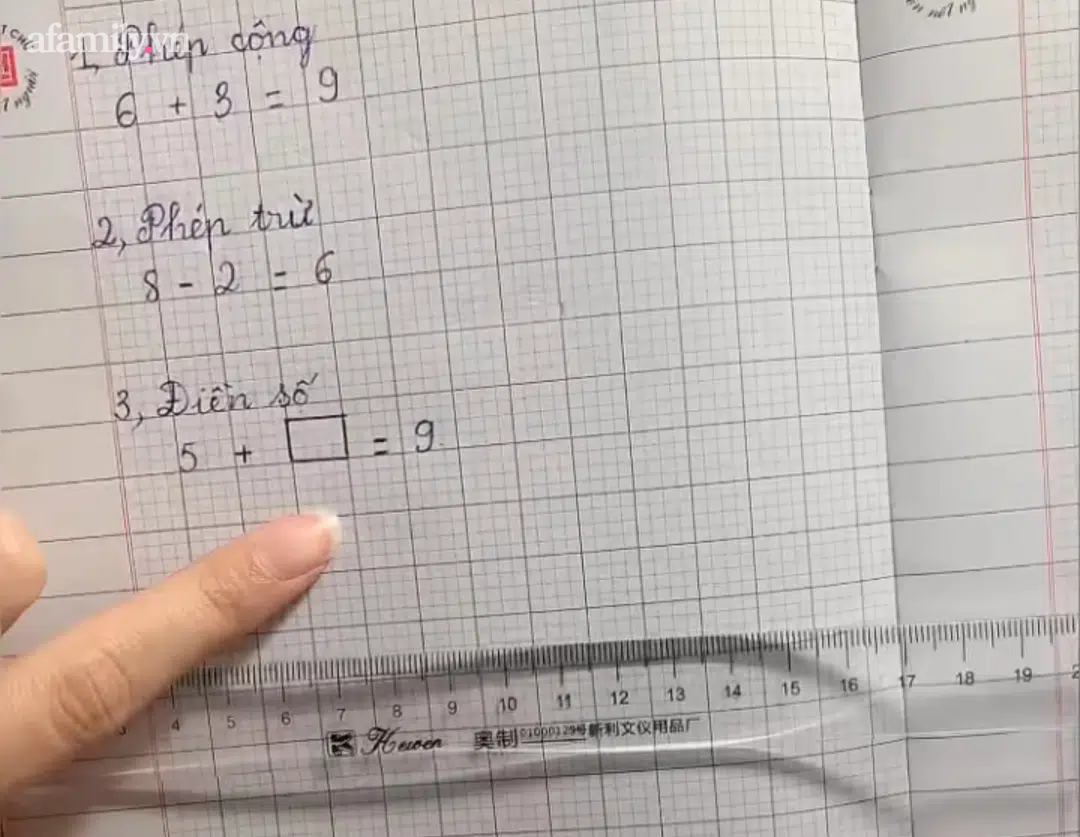 afamily.vn
1, Phép cộng
6 + 3 = 9
2, Phép trừ
8 - 2 = 6
3, Điền số
5 + □ = 9
3 4 5 6 7 8 9 10 11 12 13 14 15 16 17 18 19 2
Kewen 奥制 01000129号 新利文仪用品厂